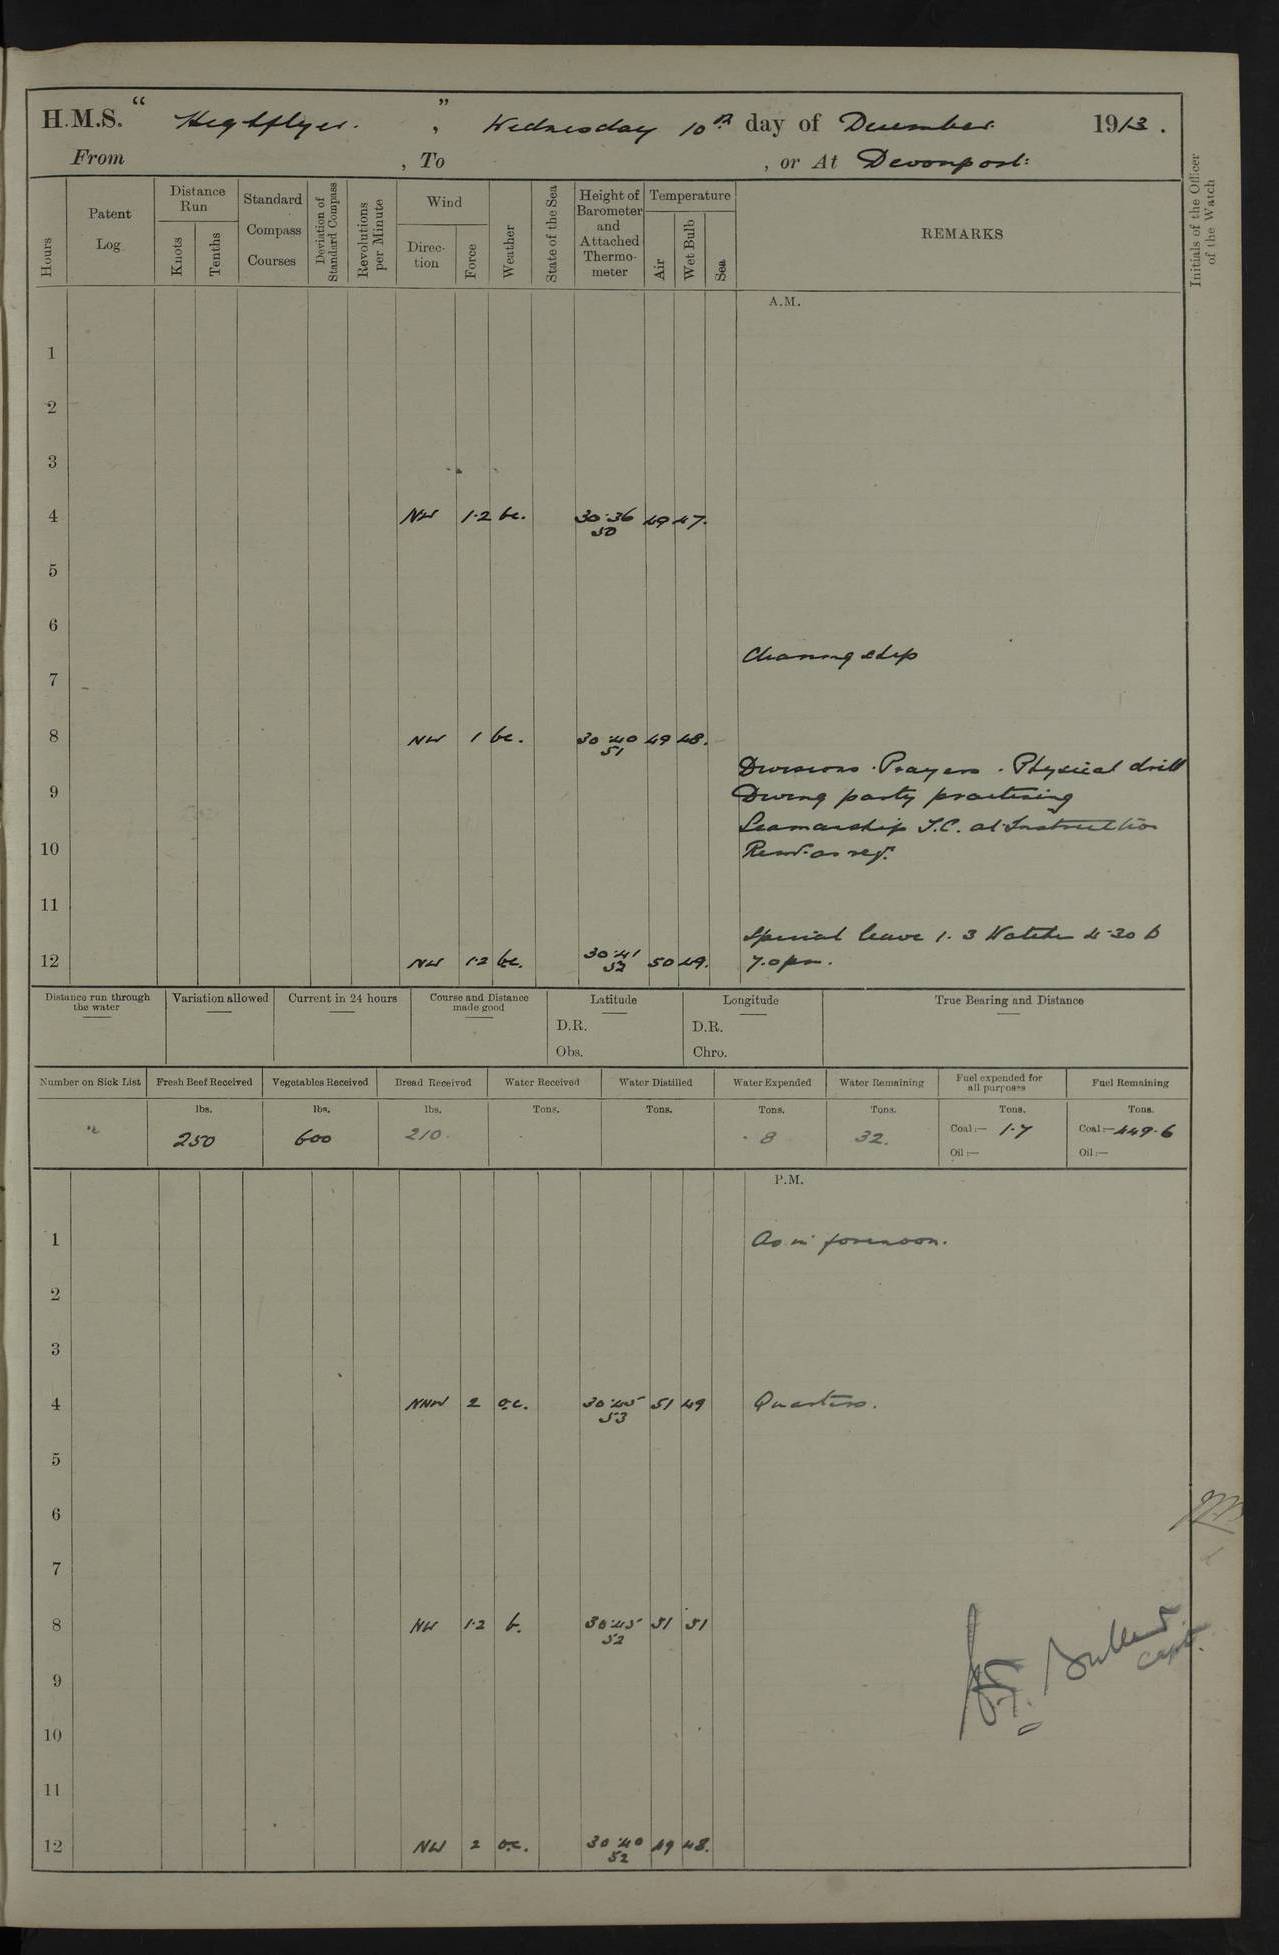 H.M.S. “ Highflyer. ” , Wednesday 10th day of December 1913.
From , To , or At Devonport:
Hours
Patent Log
Distance Run
Knots
Tenths
Standard Compass Courses
Deviation of Standard Compass
Revolutions per Minute
Wind
Direction
Force
Weather
State of the Sea
Height of Barometer and Attached Thermometer
Temperature
Air
Wet Bulb
Sea
REMARKS
Initials of the Officer of the Watch
A.M.
1
2
3
4 NW 1.2 bc. 30.36 49 47.
50
5
6
Cleaning ship
7
8 NW 1 bc. 30.40 49 48.
51
Divisions. Prayers. Physical drill
9 Diving party practising
Seamanship T.C. at Instruction
10 Remr. as req.
11
Special leave 1. 3 Watch 4.30 to
12 NW 1.2 bc. 30.41 50 49. 7.0 pm.
52
Distance run through the water
Variation allowed
Current in 24 hours
Course and Distance made good
Latitude
D.R.
Obs.
Longitude
D.R.
Chro.
True Bearing and Distance
Number on Sick List
Fresh Beef Received
Vegetables Received
Bread Received
Water Received
Water Distilled
Water Expended
Water Remaining
Fuel expended for all purposes
Fuel Remaining
lbs. lbs. lbs. Tons. Tons. Tons. Tons. Tons. Tons.
250 600 210. 8 32. Coal:— 1.7 Coal:— 449.6
Oil:— Oil:—
P.M.
1 As in forenoon.
2
3
4 NNW 2 o.c. 30.45 51 49 Quarters.
53
5
6
7
8 NW 1.2 b. 30.45 51 51
52
Capt.
9
10
11
12 NW 2 o.c. 30.40 49 48.
52